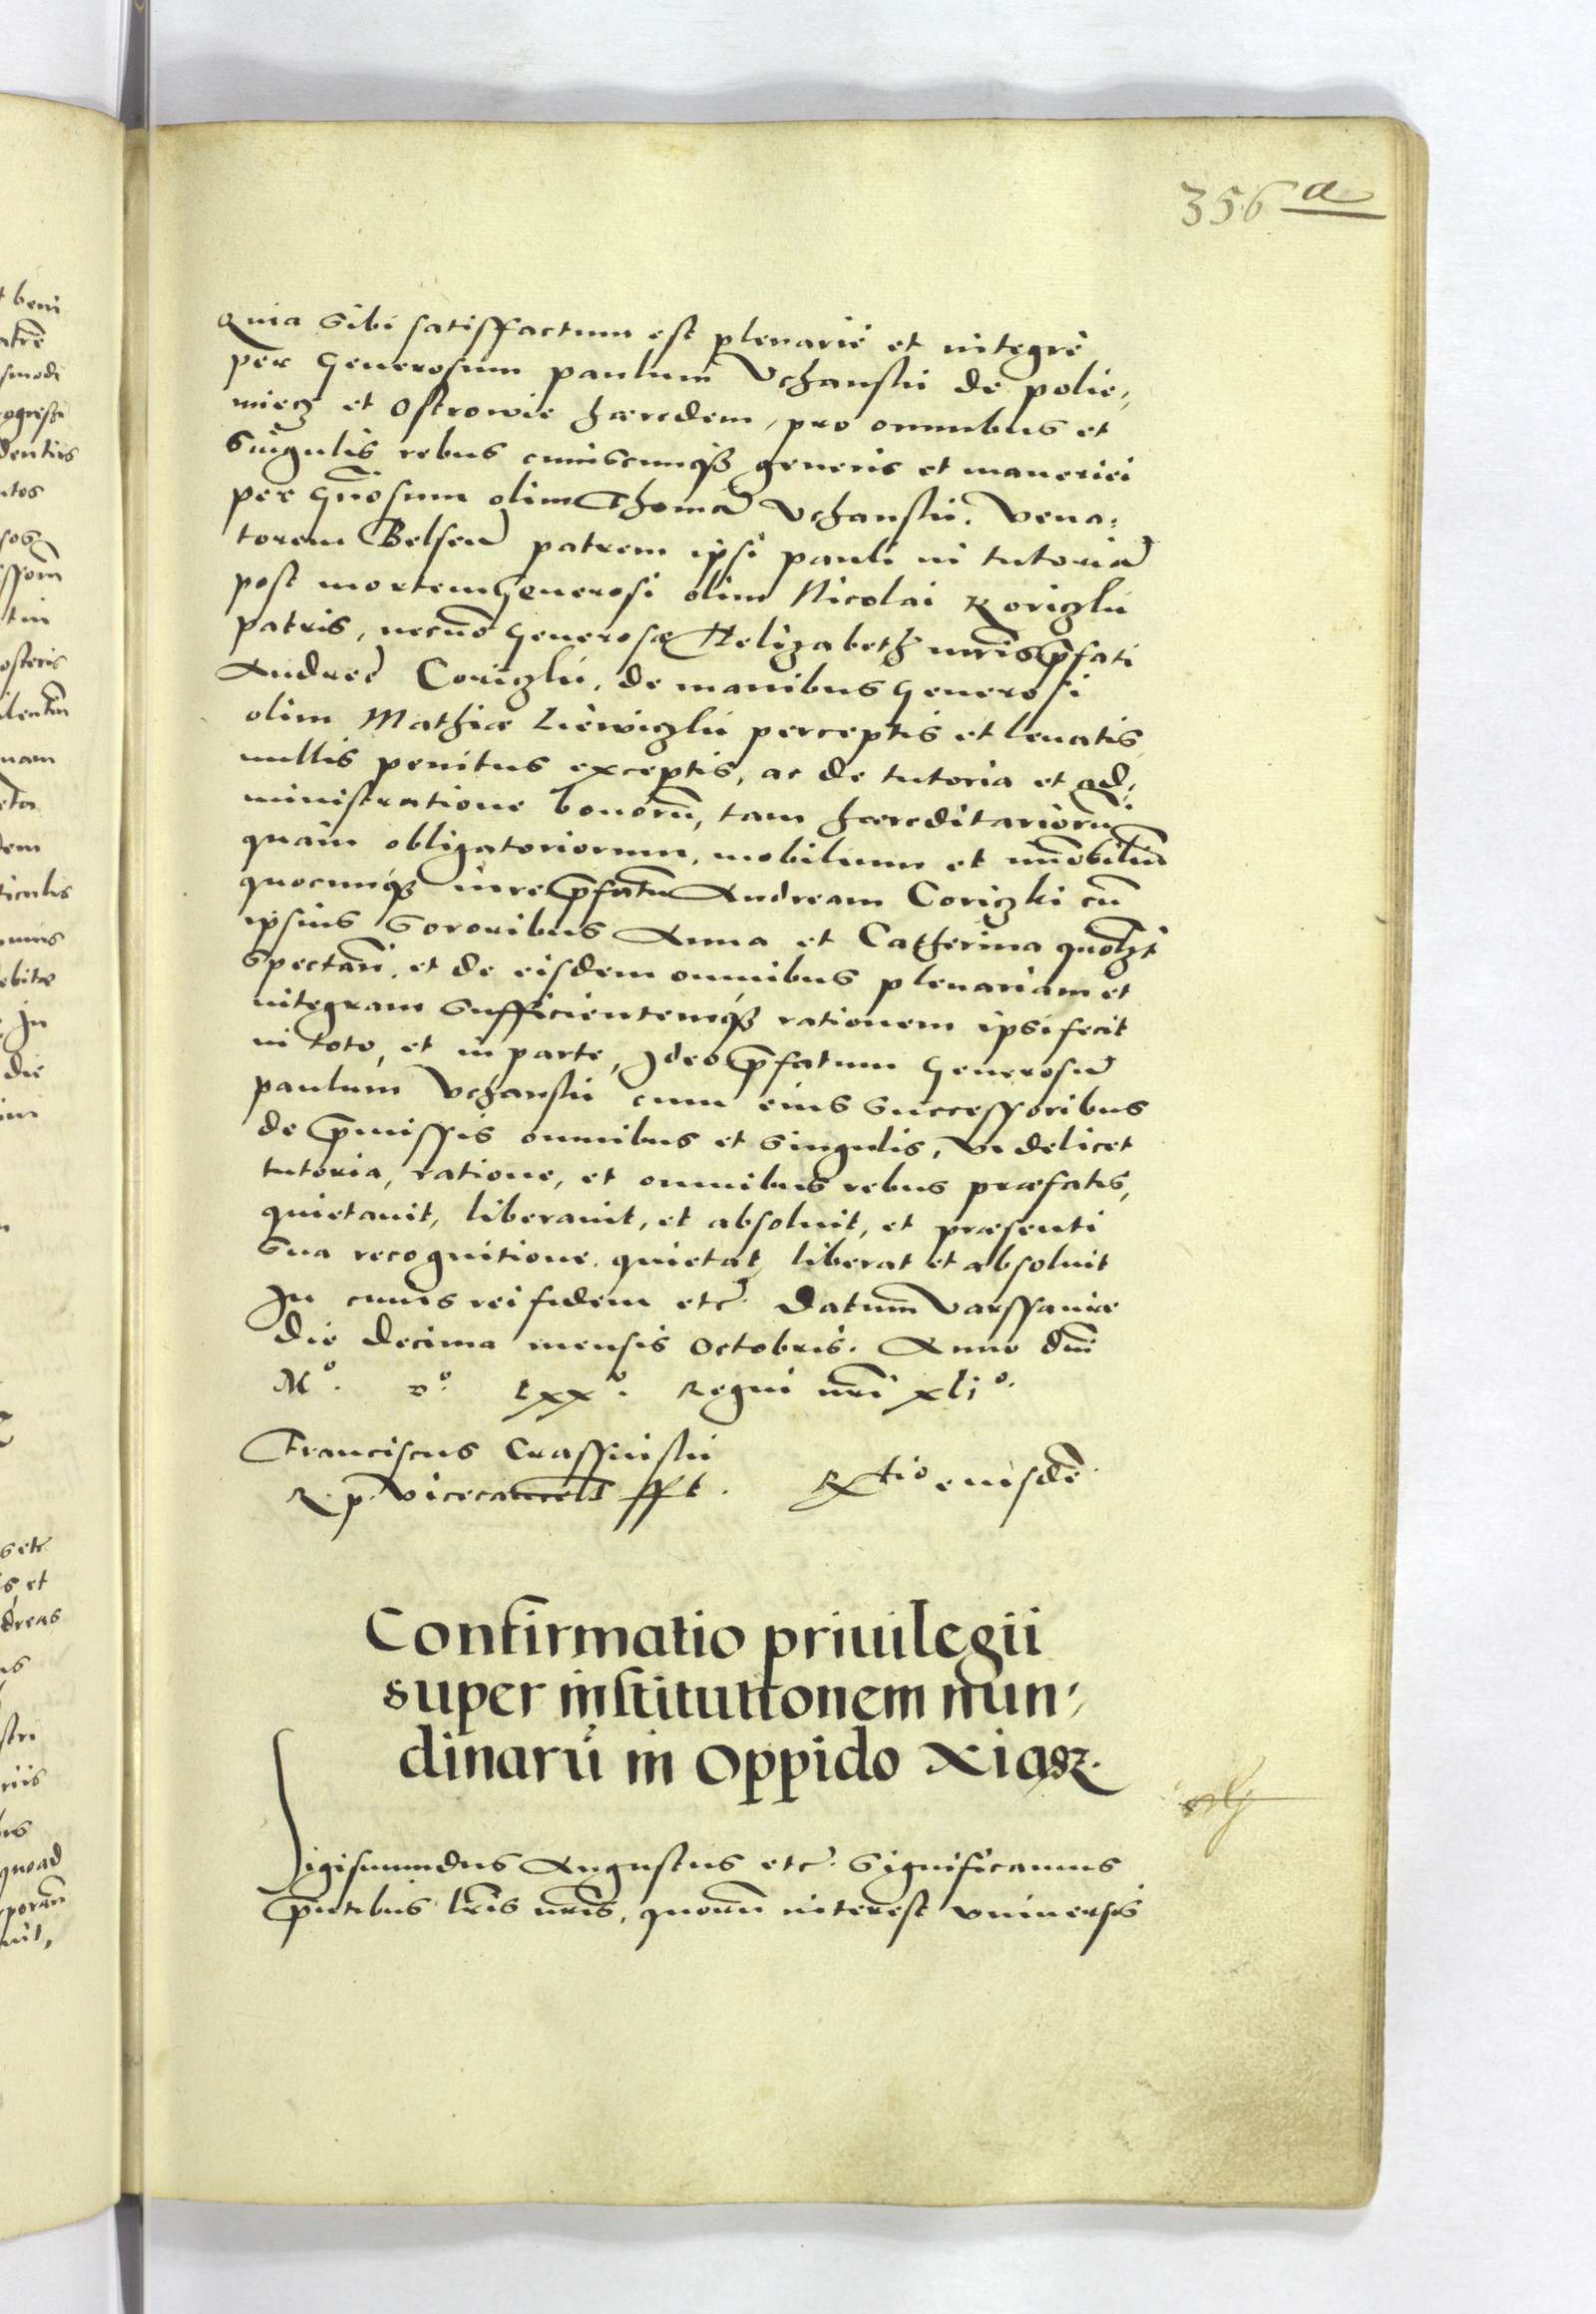 356 a
Quia sibi satisffactum est plenarie et integre
per Generosum paulum Vchanskii de polie„
miecz et Ostrowie hæredem, pro omnibus et
singulis rebus cuiuscunq3 generis et maneriei
per gnosum olim Thomā Vchanskii. Vena„
torem Belsen̄ patrem ipsi pauli in tutoriā
post mortem Generosi olim Nicolai Koriczkii
patris, necnō Generosæ Helizabeth mr̄is p̄fati
Andreæ Coriczkii, de manibus Generosi
olim Mathiæ Liewiczkii perceptis et leuatis,
nullis penitus exceptis, ac de tutoria et ad„
ministratione bonorū, tam hæreditariorū
quàm obligatoriorum, mobilium et īmobiliū
quocunq3 iure p̄fatū Andream Coriczki cū
ipsius sororibus Anna et Catherina quōl3t
spectan̄. et de eisdem omnibus plenariam et
integram sufficientemq3 rationem ipsi fecit
in toto, et in parte, Ideo p̄fatum Generosū
paulum Vchanskii cum eius successoribus
de p̄missis omnibus et singulis, videlicet
tutoria, ratione, et omnibus rebus præfatis,
quietauit, liberauit, et absoluit, et præsenti
sua recognitione quietat, liberat et absoluit
In cuius rei fidem etc̄. Datum Varssauiæ
die decima mensis Octobris. Anno dn̄i
Mº. dº. Lxxº. Regni nr̄i xljº.
Franciscus Crassinskii
R. p. Vicecancell̄ sst. Rtio eiusdē.
Confirmatio priuilegii
super institutionem nun„
dinarū in Oppido Xiasz.
Sigismundus Augustus etc̄. Significamus
p̄ntibus lr̄is nr̄is, quorū interest vniuersis